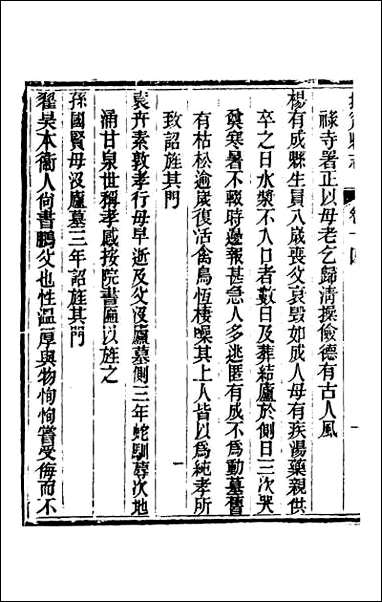 撫寧縣志 卷十四
祿寺署正以母老乞歸淸操儉德有古人風
楊有成縣生員八歲喪父哀毀如成人母有疾湯藥親供
卒之日水漿不入口者數日及葬結廬於側日三次哭
奠寒暑不輟時邊報甚急人多逃匿有成不爲動墓舊
有枯松逾歲復活禽鳥恆棲噪其上人皆以爲純孝所
致詔旌其門
袁卉素敦孝行母早逝及父沒廬墓側三年蛇馴蓐次地
涌甘泉世稱孝感按院書匾以旌之
孫國賢母沒廬墓三年詔旌其門
翟昊本衞人尙書鵬父也性溫厚與物恂恂嘗受侮而不